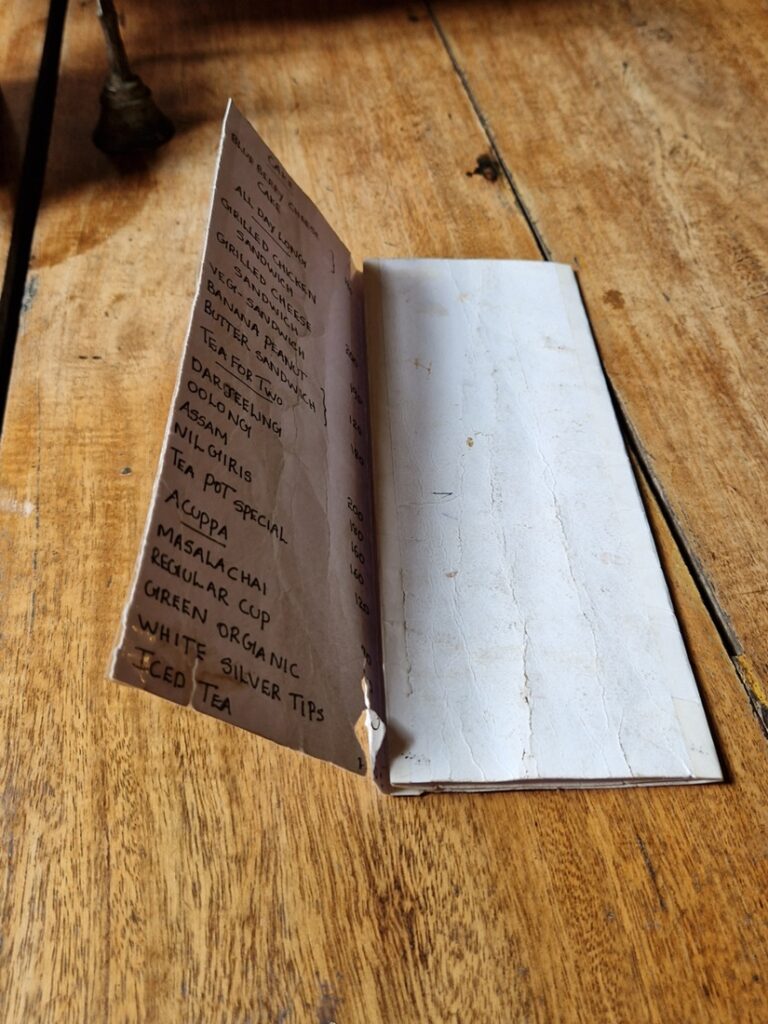 CAKE
BLUE BERRY CHEESE
CAKE
ALL DAY LONG
GRILLED CHICKEN
SANDWICH
GRILLED CHEESE
SANDWICH
VEG. SANDWICH
BANANA PEANUT
BUTTER SANDWICH
TEA FOR TWO
DARJEELING
OOLONG
ASSAM
NILGIRIS
TEA POT SPECIAL
ACUPPA
MASALA CHAI
REGULAR CUP
GREEN ORGANIC
WHITE SILVER TIPS
ICED TEA
200
150
120
180
200
180
160
160
120
90